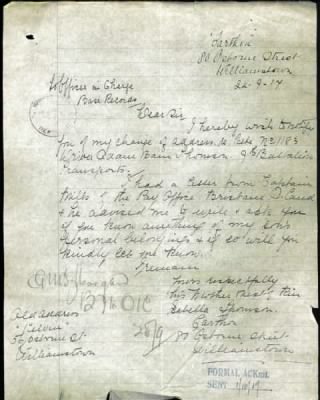 "Carthon"
80 Osborne Street
Williamstown
22-9-17
To Officer in Charge
Base Records
Dear Sir
I hereby wish to notify
you of my change of address to Re No 1183
Driver Adam Bain Thomson 9th Battalion
Transports.
I had a letter from Captain
Mills of the Pay Office Brisbane Q'land
& he advised me to write & ask you
if you know anything of my son's
personal belongings & if so will you
kindly let you know.
I remain
Yours respectfully
his Mother Next of Kin
Isabella Thomson.
Carthon
80 Osborne Street
Williamstown
Old address
56 Osborne St
Williamstown
28/9
FORMAL ACKmt.
SENT 1/10/17